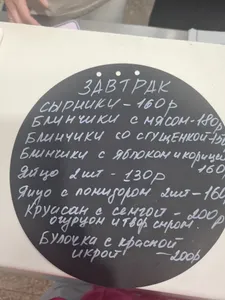 ЗАВТРАК
СЫРНИКИ - 160 р
БЛИНЧИКИ С МЯСОМ - 180 р
БЛИНЧИКИ СО СГУЩЕНКОЙ - 150
БЛИНЧИКИ С ЯБЛОКОМ И КОРИЦЕЙ
160 р
ЯЙЦО 2 шт - 130 р
ЯЙЦО С ПОМИДОРОМ 2 шт - 160
КРУАСАН С СЕМГОЙ - 200 р
ОГУРЦОМ И ТВОР. СЫРОМ.
БУЛОЧКА С КРАСНОЙ
ИКРОЙ - 200 р